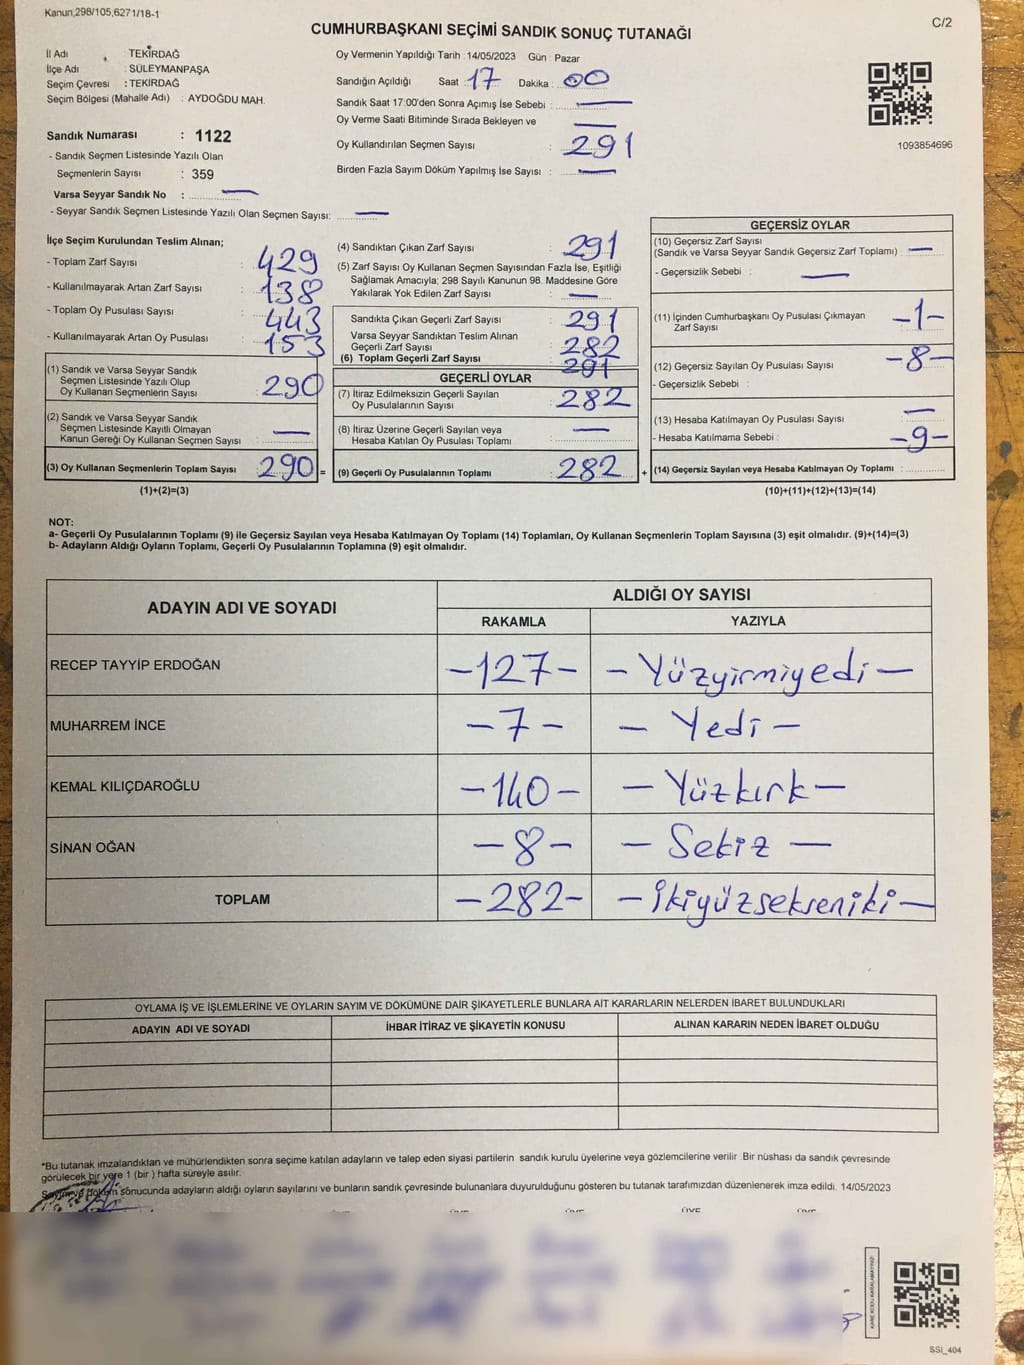 Kanun,298/105,6271/18-1
C/2
CUMHURBAŞKANI SEÇİMİ SANDIK SONUÇ TUTANAĞI
İl Adı : TEKİRDAĞ
İlçe Adı : SÜLEYMANPAŞA
Seçim Çevresi : TEKİRDAĞ
Seçim Bölgesi (Mahalle Adı) : AYDOĞDU MAH.
Sandık Numarası : 1122
- Sandık Seçmen Listesinde Yazılı Olan
Seçmenlerin Sayısı : 359
Varsa Seyyar Sandık No : —
- Seyyar Sandık Seçmen Listesinde Yazılı Olan Seçmen Sayısı: —
Oy Vermenin Yapıldığı Tarih : 14/05/2023 Gün : Pazar
Sandığın Açıldığı Saat : 17 Dakika : 00
Sandık Saat 17:00'den Sonra Açımış İse Sebebi : —
Oy Verme Saati Bitiminde Sırada Bekleyen ve —
Oy Kullandırılan Seçmen Sayısı : 291
Birden Fazla Sayım Döküm Yapılmış İse Sayısı : —
1093854696
İlçe Seçim Kurulundan Teslim Alınan;
- Toplam Zarf Sayısı : 429
- Kullanılmayarak Artan Zarf Sayısı : 138
- Toplam Oy Pusulası Sayısı : 443
- Kullanılmayarak Artan Oy Pusulası : 153
(1) Sandık ve Varsa Seyyar Sandık
Seçmen Listesinde Yazılı Olup
Oy Kullanan Seçmenlerin Sayısı : 290
(2) Sandık ve Varsa Seyyar Sandık
Seçmen Listesinde Kayıtlı Olmayan
Kanun Gereği Oy Kullanan Seçmen Sayısı : —
(3) Oy Kullanan Seçmenlerin Toplam Sayısı : 290 =
(1)+(2)=(3)
(4) Sandıktan Çıkan Zarf Sayısı : 291
(5) Zarf Sayısı Oy Kullanan Seçmen Sayısından Fazla İse, Eşitliği
Sağlamak Amacıyla; 298 Sayılı Kanunun 98. Maddesine Göre
Yakılarak Yok Edilen Zarf Sayısı : —
Sandıkta Çıkan Geçerli Zarf Sayısı : 291
Varsa Seyyar Sandıktan Teslim Alınan
Geçerli Zarf Sayısı : 282
(6) Toplam Geçerli Zarf Sayısı : 291
GEÇERLİ OYLAR
(7) İtiraz Edilmeksizin Geçerli Sayılan
Oy Pusulalarının Sayısı : 282
(8) İtiraz Üzerine Geçerli Sayılan veya
Hesaba Katılan Oy Pusulası Toplamı : —
(9) Geçerli Oy Pusulalarının Toplamı : 282 +
GEÇERSİZ OYLAR
(10) Geçersiz Zarf Sayısı
(Sandık ve Varsa Seyyar Sandık Geçersiz Zarf Toplamı) : —
- Geçersizlik Sebebi : —
(11) İçinden Cumhurbaşkanı Oy Pusulası Çıkmayan
Zarf Sayısı : -1-
(12) Geçersiz Sayılan Oy Pusulası Sayısı : -8-
- Geçersizlik Sebebi :
(13) Hesaba Katılmayan Oy Pusulası Sayısı : —
- Hesaba Katılmama Sebebi : -9-
(14) Geçersiz Sayılan veya Hesaba Katılmayan Oy Toplamı :
(10)+(11)+(12)+(13)=(14)
NOT:
a- Geçerli Oy Pusulalarının Toplamı (9) ile Geçersiz Sayılan veya Hesaba Katılmayan Oy Toplamı (14) Toplamları, Oy Kullanan Seçmenlerin Toplam Sayısına (3) eşit olmalıdır. (9)+(14)=(3)
b- Adayların Aldığı Oyların Toplamı, Geçerli Oy Pusulalarının Toplamına (9) eşit olmalıdır.
ADAYIN ADI VE SOYADI
ALDIĞI OY SAYISI
RAKAMLA YAZIYLA
RECEP TAYYİP ERDOĞAN -127- - Yüzyirmiyedi -
MUHARREM İNCE -7- - Yedi -
KEMAL KILIÇDAROĞLU -140- - Yüzkırk -
SİNAN OĞAN -8- - Sekiz -
TOPLAM -282- - İkiyüzsekseniki -
OYLAMA İŞ VE İŞLEMLERİNE VE OYLARIN SAYIM VE DÖKÜMÜNE DAİR ŞİKAYETLERLE BUNLARA AİT KARARLARIN NELERDEN İBARET BULUNDUKLARI
ADAYIN ADI VE SOYADI İHBAR İTİRAZ VE ŞİKAYETİN KONUSU ALINAN KARARIN NEDEN İBARET OLDUĞU
*Bu tutanak imzalandıktan ve mühürlendikten sonra seçime katılan adayların ve talep eden siyasi partilerin sandık kurulu üyelerine veya gözlemcilerine verilir. Bir nüshası da sandık çevresinde
görülecek bir yere 1 (bir) hafta süreyle asılır.
Sayım ve döküm sonucunda adayların aldığı oyların sayılarını ve bunların sandık çevresinde bulunanlara duyurulduğunu gösteren bu tutanak tarafımızdan düzenlenerek imza edildi. 14/05/2023
ÜYE ÜYE ÜYE ÜYE
KARE KODU KARALAMAYINIZ!
SSİ_404